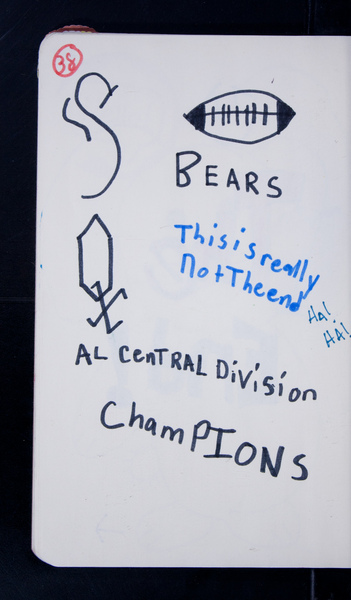 38
BEARS
This is really
Not The end
Ha!
HA!
AL CENTRAL DiViSion
ChamPIONS